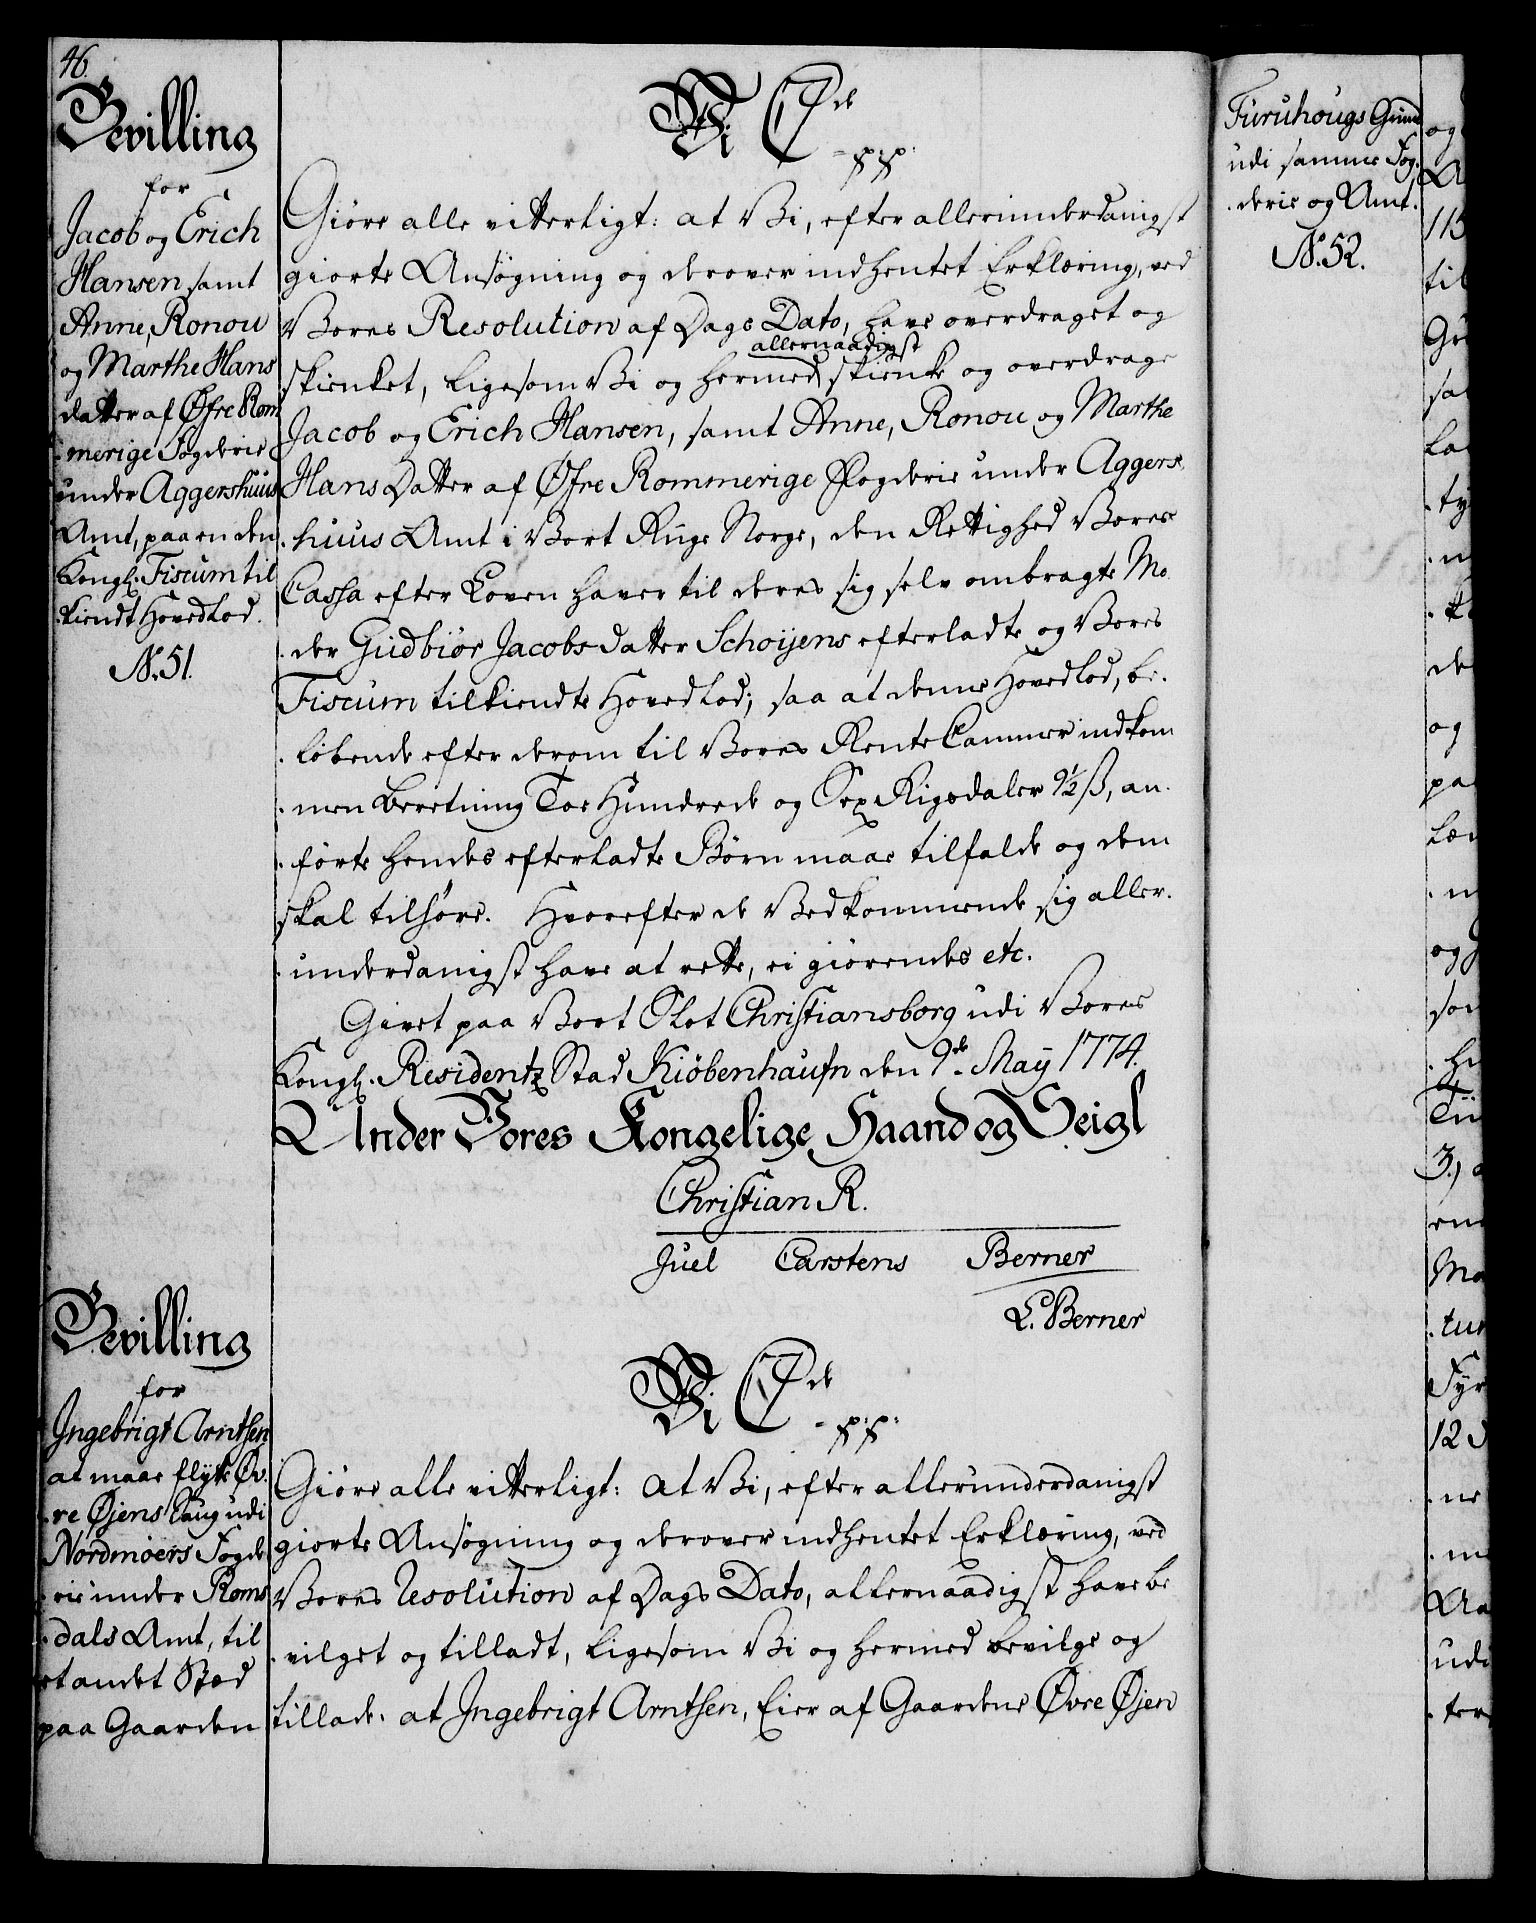 46.
Bevilling
for
Jacob og Erich
Hansen, samt
Anne, Ronou
og Marthe Hans
datter af Øfre Rom
merige Fogderie
under Aggershuus
Amt, paa en den
Kongl. Fiscum til
kiendt Hovedlod.
N. 51.
Vi C 7de
pp.
Giøre alle vitterligt: at Vi, efter allerunderdanigst
giorte Ansøgning og derover indhentet Erklæring, ved
Vores Resolution af Dags Dato, have overdraget og
skienket, ligesom Vi og hermed allernaadigst skienke og overdrage
Jacob og Erich Hansen, samt Anne, Ronou og Marthe
Hans Datter af Øfre Rommerige Fogderie under Aggers
huus Amt i Vort Rige Norge, den Rettighed Vores
Cassa efter Loven haver til deres sig selv ombragte Mo
der Gudbiør Jacobs datter Schoÿens efterladte og Vores
Fiscum tilkiendte Hovedlod; saa at denne Hovedlod, be-
løbende efter derom til Vores Rente Cammer indkom
men Beretning Toe Hundrede og Sex Rigsdaler 9½ ß, an-
førte hendes efterladte Børn maae tilfalde og dem
skal tilhøre. Hvorefter de Vedkommende sig aller-
underdanigst have at rette, ei giørendes etc.
Givet paa Vort Slot Christiansborg udi Vores
Kongl. Residentz Stad Kiöbenhaufn den 9de Maÿ 1774.
Under Vores Kongelige Haand og Seigl
Christian R.
Juel Carstens Berner
L. Berner
Bevilling
for
Ingebrigt Arntsen
at maae flÿtte Øv-
re Øjens Laug udi
Nordmøers Fogde
rie under Roms
dals Amt, til
et andet Stæd
paa Gaarden
Vi C 7de
pp.
Giøre alle vitterligt: at Vi, efter allerunderdanigst
giorte Ansøgning og derover indhentet Erklæring, ved
Vores Resolution af Dags Dato, allernaadigst have be
vilget og tilladt, ligesom Vi og hermed bevilge og
tillade: at Ingebrigt Arntsen, Eier af Gaardene Øvre Øjen
Furuhougs Grund
udi samme Fog-
derie og Amt.
N. 52.